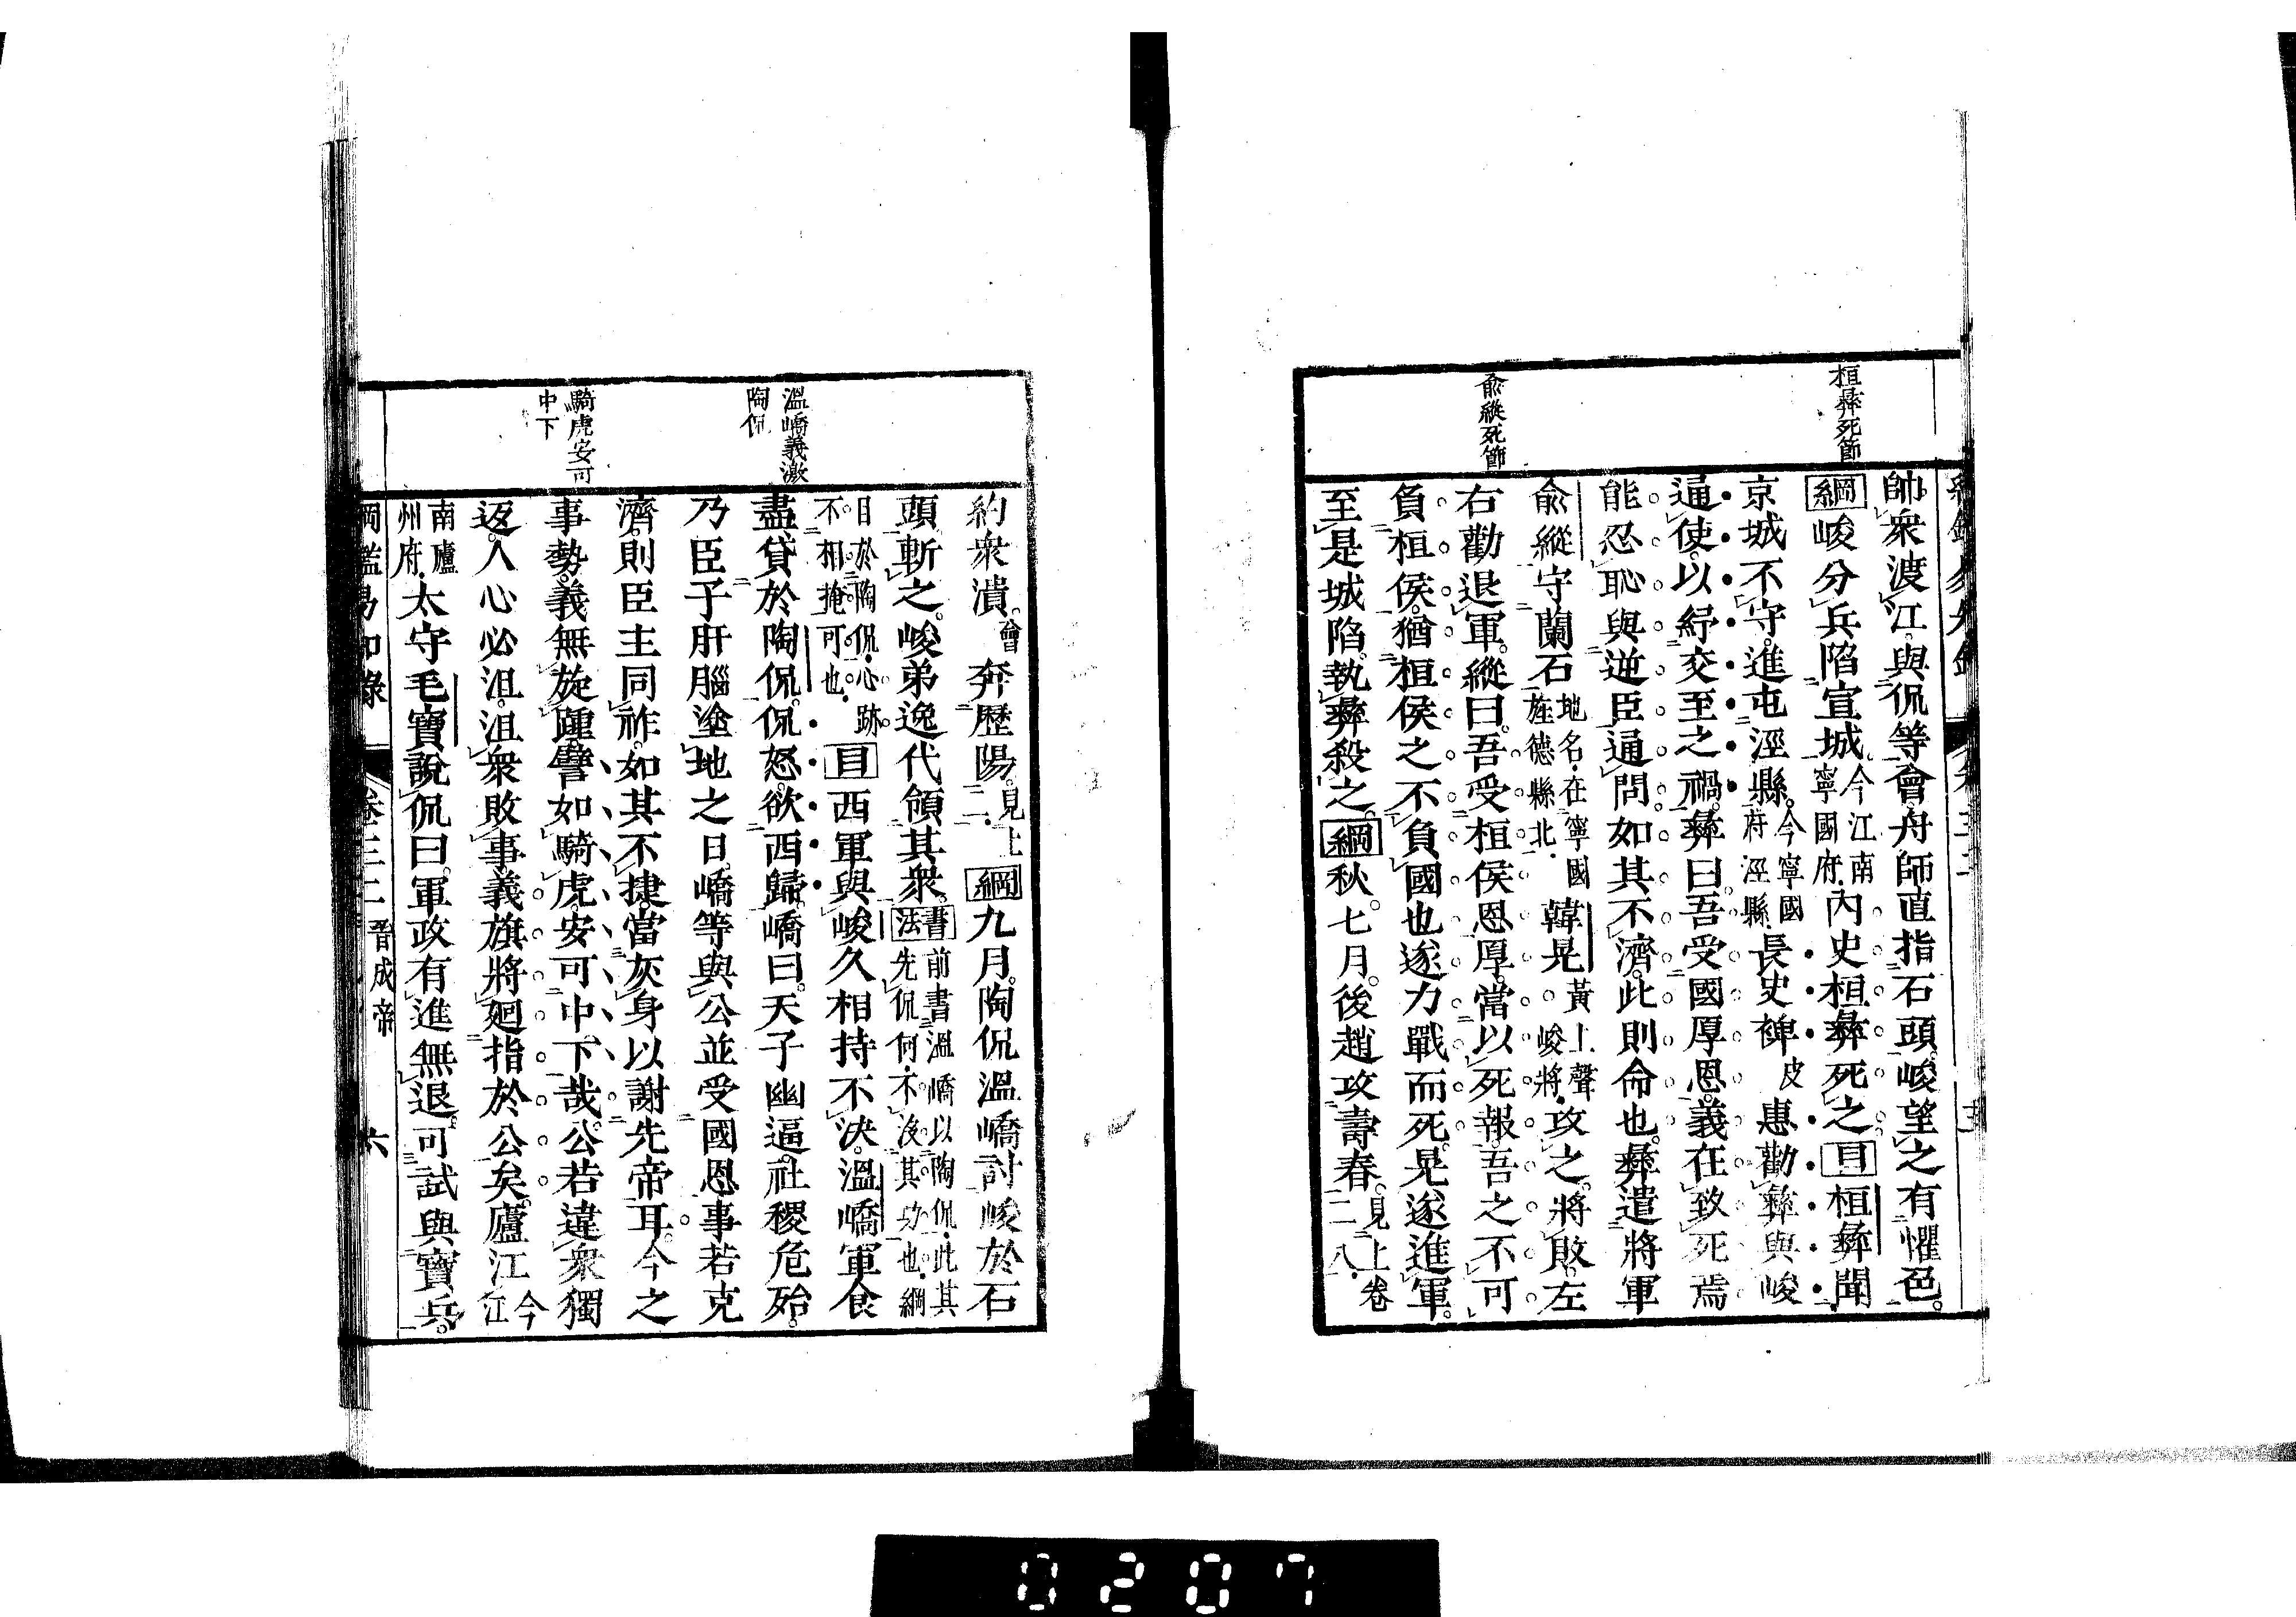 桓彝死節
俞縱死節
帥衆渡江與侃等會舟師直指石頭峻望之有懼色
綱峻分兵陷宣城今江南寧國府內史桓彝死之目桓彝聞
京城不守進屯涇縣今寧國府涇縣長史裨皮惠勸彝與峻
通使以紓交至之禍彝曰吾受國厚恩義在致死焉
能忍恥與逆臣通問如其不濟此則命也彝遣將軍
俞縱守蘭石地名在寧國旌德縣北韓晃黃上聲峻將攻之將敗左
右勸退軍縱曰吾受桓侯恩厚當以死報吾之不可
負桓侯猶桓侯之不負國也遂力戰而死晃遂進軍
至是城陷執彝殺之綱秋七月後趙攻壽春見上卷二八
溫嶠義激
陶侃
騎虎安可
中下
約衆潰會奔歷陽見上二綱九月陶侃溫嶠討峻於石
頭斬之峻弟逸代領其衆書法前書溫嶠以陶侃此其先侃何不沒其功也綱
目於陶侃心跡不相掩可也目西軍與峻久相持不決溫嶠軍食
盡貸於陶侃侃怒欲西歸嶠曰天子幽逼社稷危殆
乃臣子肝腦塗地之日嶠等與公並受國恩事若克
濟則臣主同祚如其不捷當灰身以謝先帝耳今之
事勢義無旋踵譬如騎虎安可中下哉公若違衆獨
返人心必沮沮衆敗事義旗將廻指於公矣廬江今江
南廬州府太守毛寶說侃曰軍政有進無退可試與寶兵
綱鑑易知錄 卷三二 晉成帝 六
0207